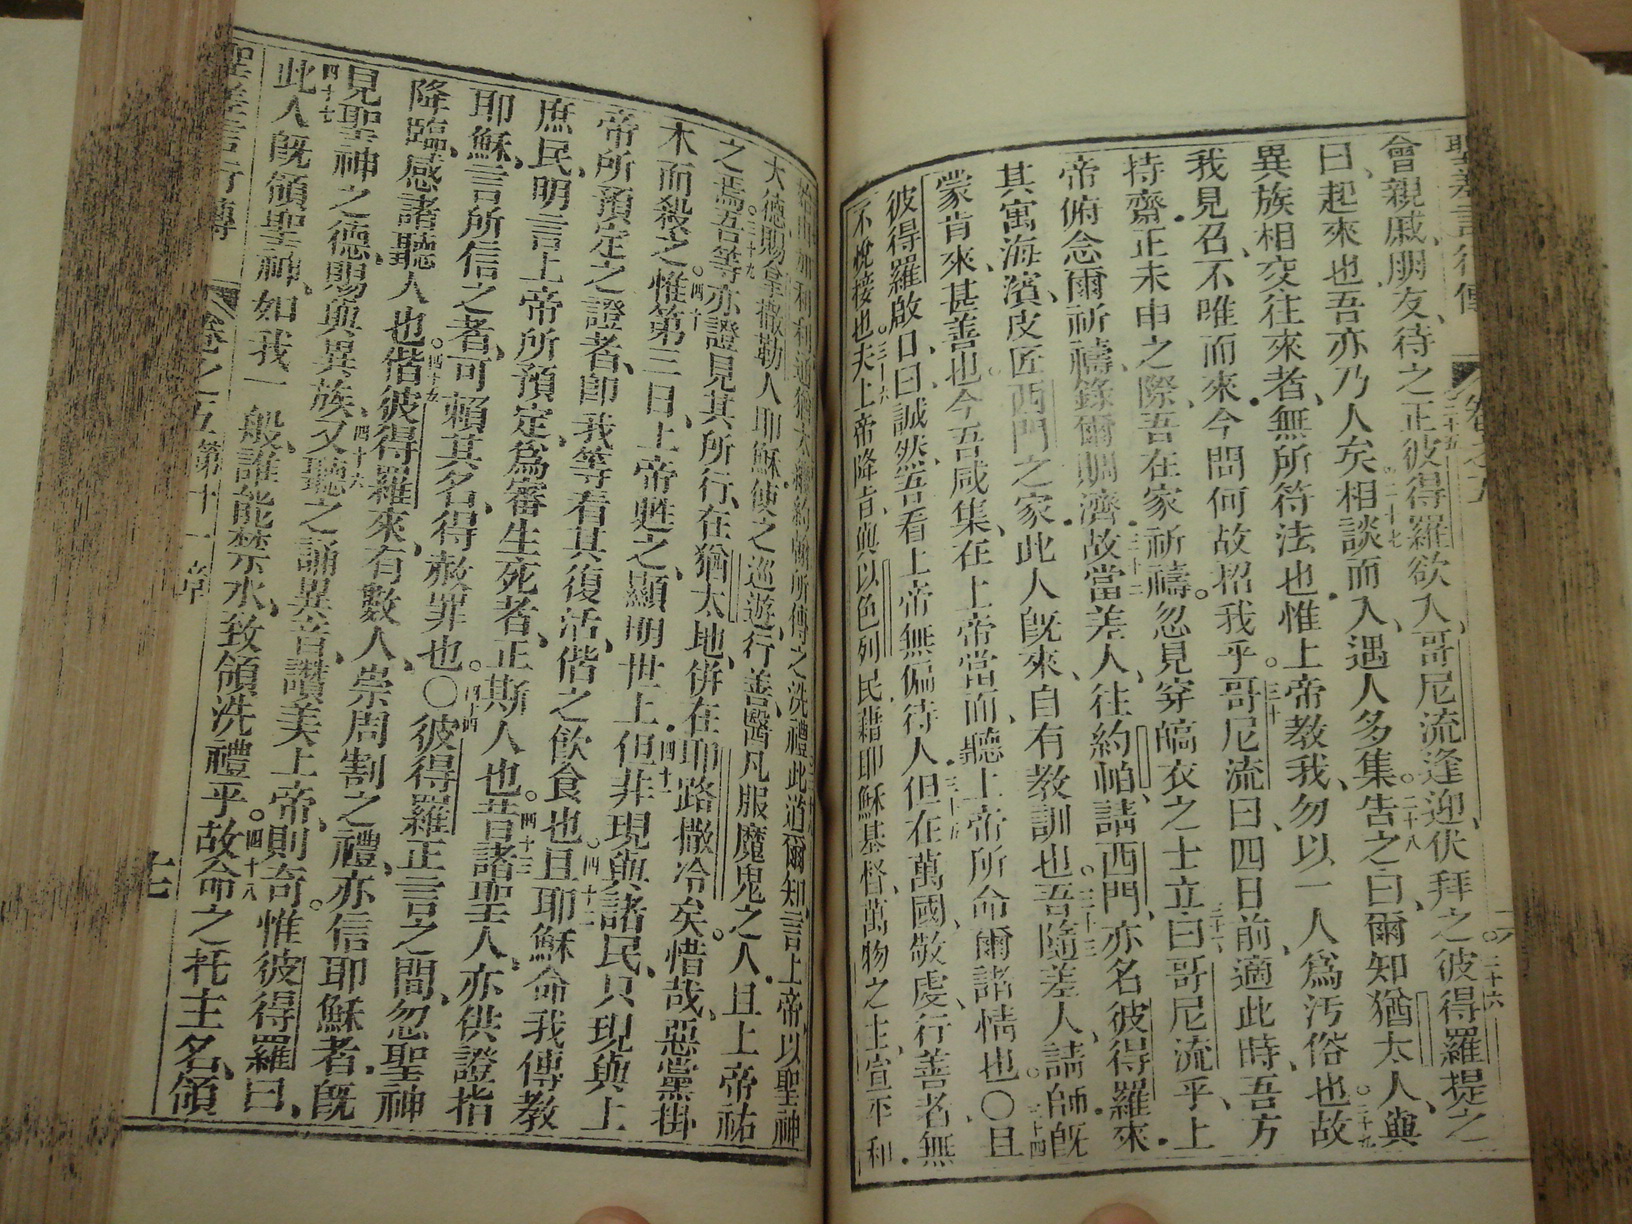 聖差言行傳 卷之五
會親戚、朋友、待之正彼得羅欲入、哥尼流逢迎、伏拜之。二十六彼得羅提之
曰、起來也吾亦乃人矣。二十七相談而入、遇人多集。二十八告之曰、爾知猶太人、與
異族相交往來者、無所符法也惟上帝教我、勿以一人爲汚俗也。二十九故
我見召、不唯而來今問何故招我乎。三十哥尼流曰、四日前、適此時、吾方
持齋正未申之際、吾在家祈禱。忽見穿皜衣之士立。三十一曰哥尼流乎、上
帝俯念爾祈禱、錄爾賙濟。三十二故當差人、往約帕、請西門、亦名彼得羅來
其寓海濱、皮匠西門之家此人既來、自有教訓也。三十三吾隨差人、請師、既
蒙肯來、甚善也。今吾咸集、在上帝當面、聽上帝所命爾諸情也。〇三十四且
彼得羅啟口、曰誠然、吾看上帝無偏待人。三十五但在萬國敬虔、行善者無
不悅接也。三十六夫上帝降旨、與以色列民、藉耶穌基督、萬物之主、宣平和
約翰所傳之洗禮此道爾知、言上帝以聖神
大德賜拿撒勒人耶穌使之巡遊、行善、醫凡服魔鬼之人。且上帝祐
之焉。三十九吾等亦證見其所行、在猶太地、併在耶路撒冷矣。惜哉、惡黨掛
木而殺之。四十惟第三日、上帝甦之、顯明世上。四十一但非現與諸民、只現與上
帝所預定之證者、卽我等看其復活、偕之飲食也。四十二且耶穌命我傳教
庶民、明言上帝所預定、爲審生死者、正斯人也。四十三昔諸聖人、亦供證指
耶穌、言所信之者、可賴其名、得赦罪也。〇四十四彼得羅正言之間、忽聖神
降臨、感諸聽人也。四十五偕彼得羅來、有數人、崇周割之禮、亦信耶穌者、既
見聖神之德、賜與異族、四十六又聽之誦異音、讚美上帝、則奇。四十七惟彼得羅曰、
此人既領聖神、如我一般、誰能禁示水、致領洗禮乎。四十八故命之托主名、領
聖差言行傳 卷之五第十一章 七